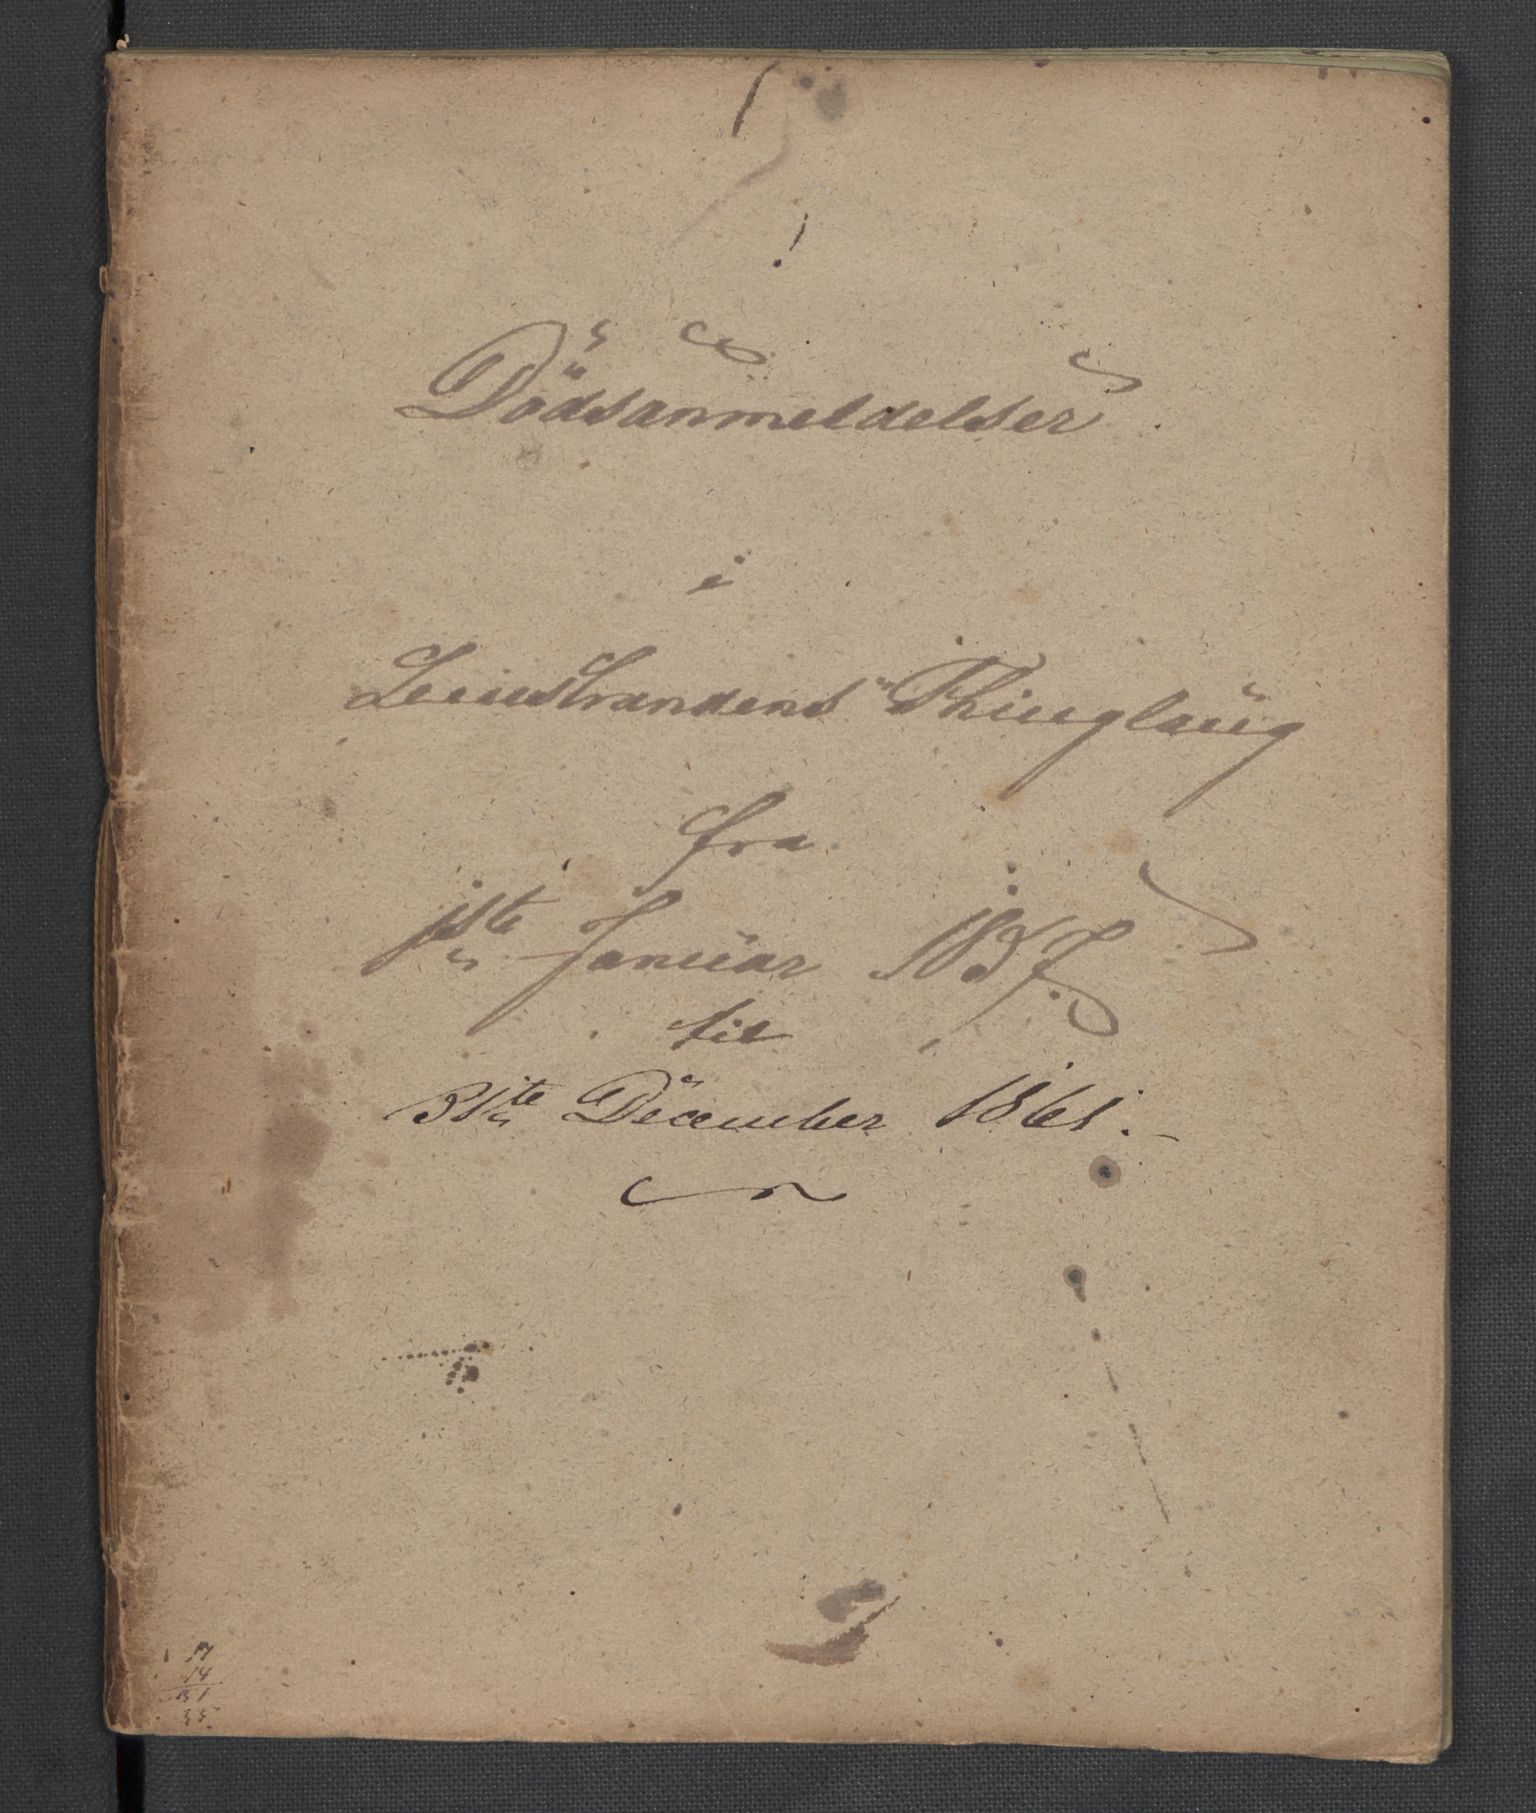 Dödsanmeldelser
i
Leinstrandens Thinglaug
fra
1ste Januar 1857.
til
31te December 1861.
17
14
31
35